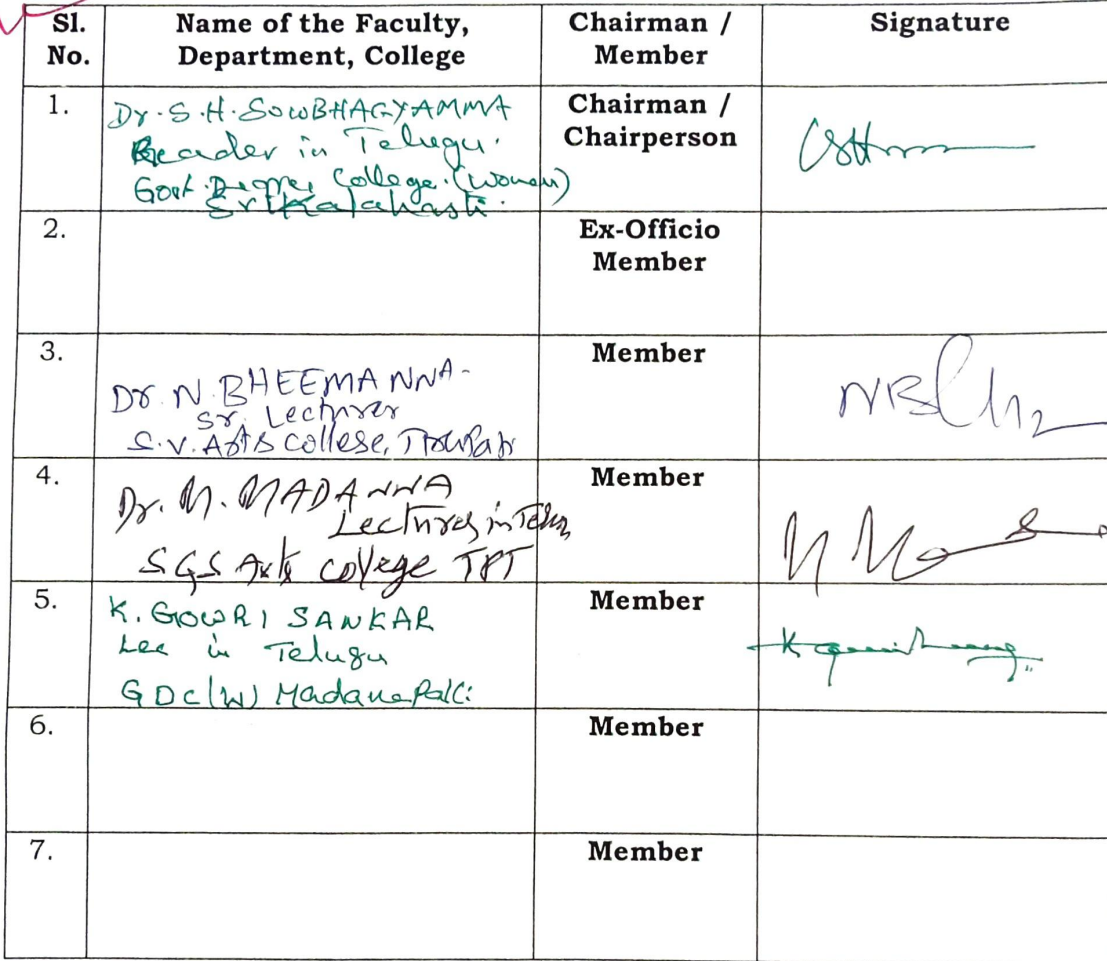 Sl. No.
Name of the Faculty, Department, College
Chairman / Member
Signature
1.
Dr. S. H. SOWBHAGYAMMA
Reader in Telugu.
Govt Degree College (Women)
Srikalahasti.
Chairman / Chairperson
2.
Ex-Officio Member
3.
Dr. N. BHEEMANNA
Sr. Lecturer
S.V. Arts College, Tirupati
Member
4.
Dr. M. MADANNA
Lecturer in
SGS Arts College TPT
Member
5.
K. GOWRI SANKAR
Lec in Telugu
GDC(W) Madanapalli
Member
6.
Member
7.
Member